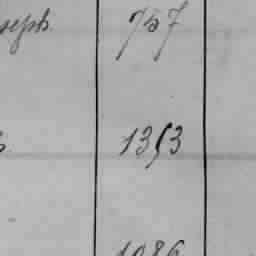 seph. 757
1353
1086